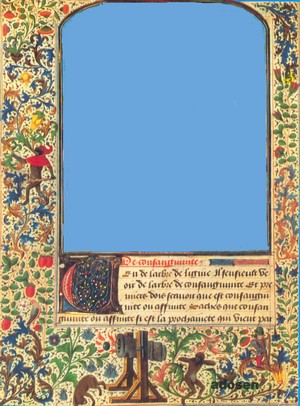 De consanguinite.
En de larbre de lignie Il sensieult ve
oir de larbre de consanguinite. Et pre
mieremt dois scauoir que est consanguin
nite ou affinite. Sachés que consan
guinite ou affinite si est la prochaineté qui vient par
adosen